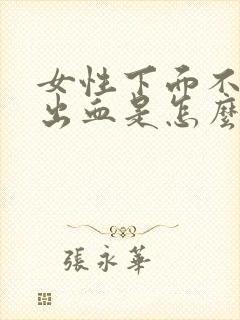 女性下而不
出血是怎麼
張永華